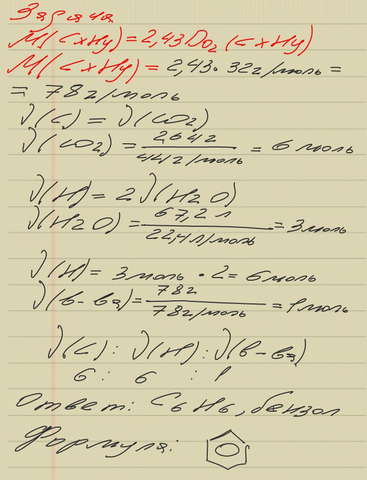 Задача
M(CxHy) = 2,43 · DO2 (CxHy)
M(CxHy) = 2,43 · 32 г/моль =
= 78 г/моль
ν(C) = ν(CO2)
ν(CO2) = 264 г / 44 г/моль = 6 моль
ν(H) = 2ν(H2O)
ν(H2O) = 67,2 л / 22,4 л/моль = 3 моль
ν(H) = 3 моль · 2 = 6 моль
ν(в-ва) = 78 г / 78 г/моль = 1 моль
ν(C) : ν(H) : ν(в-ва)
6 : 6 : 1
Ответ: C6H6, бензол
Формула: